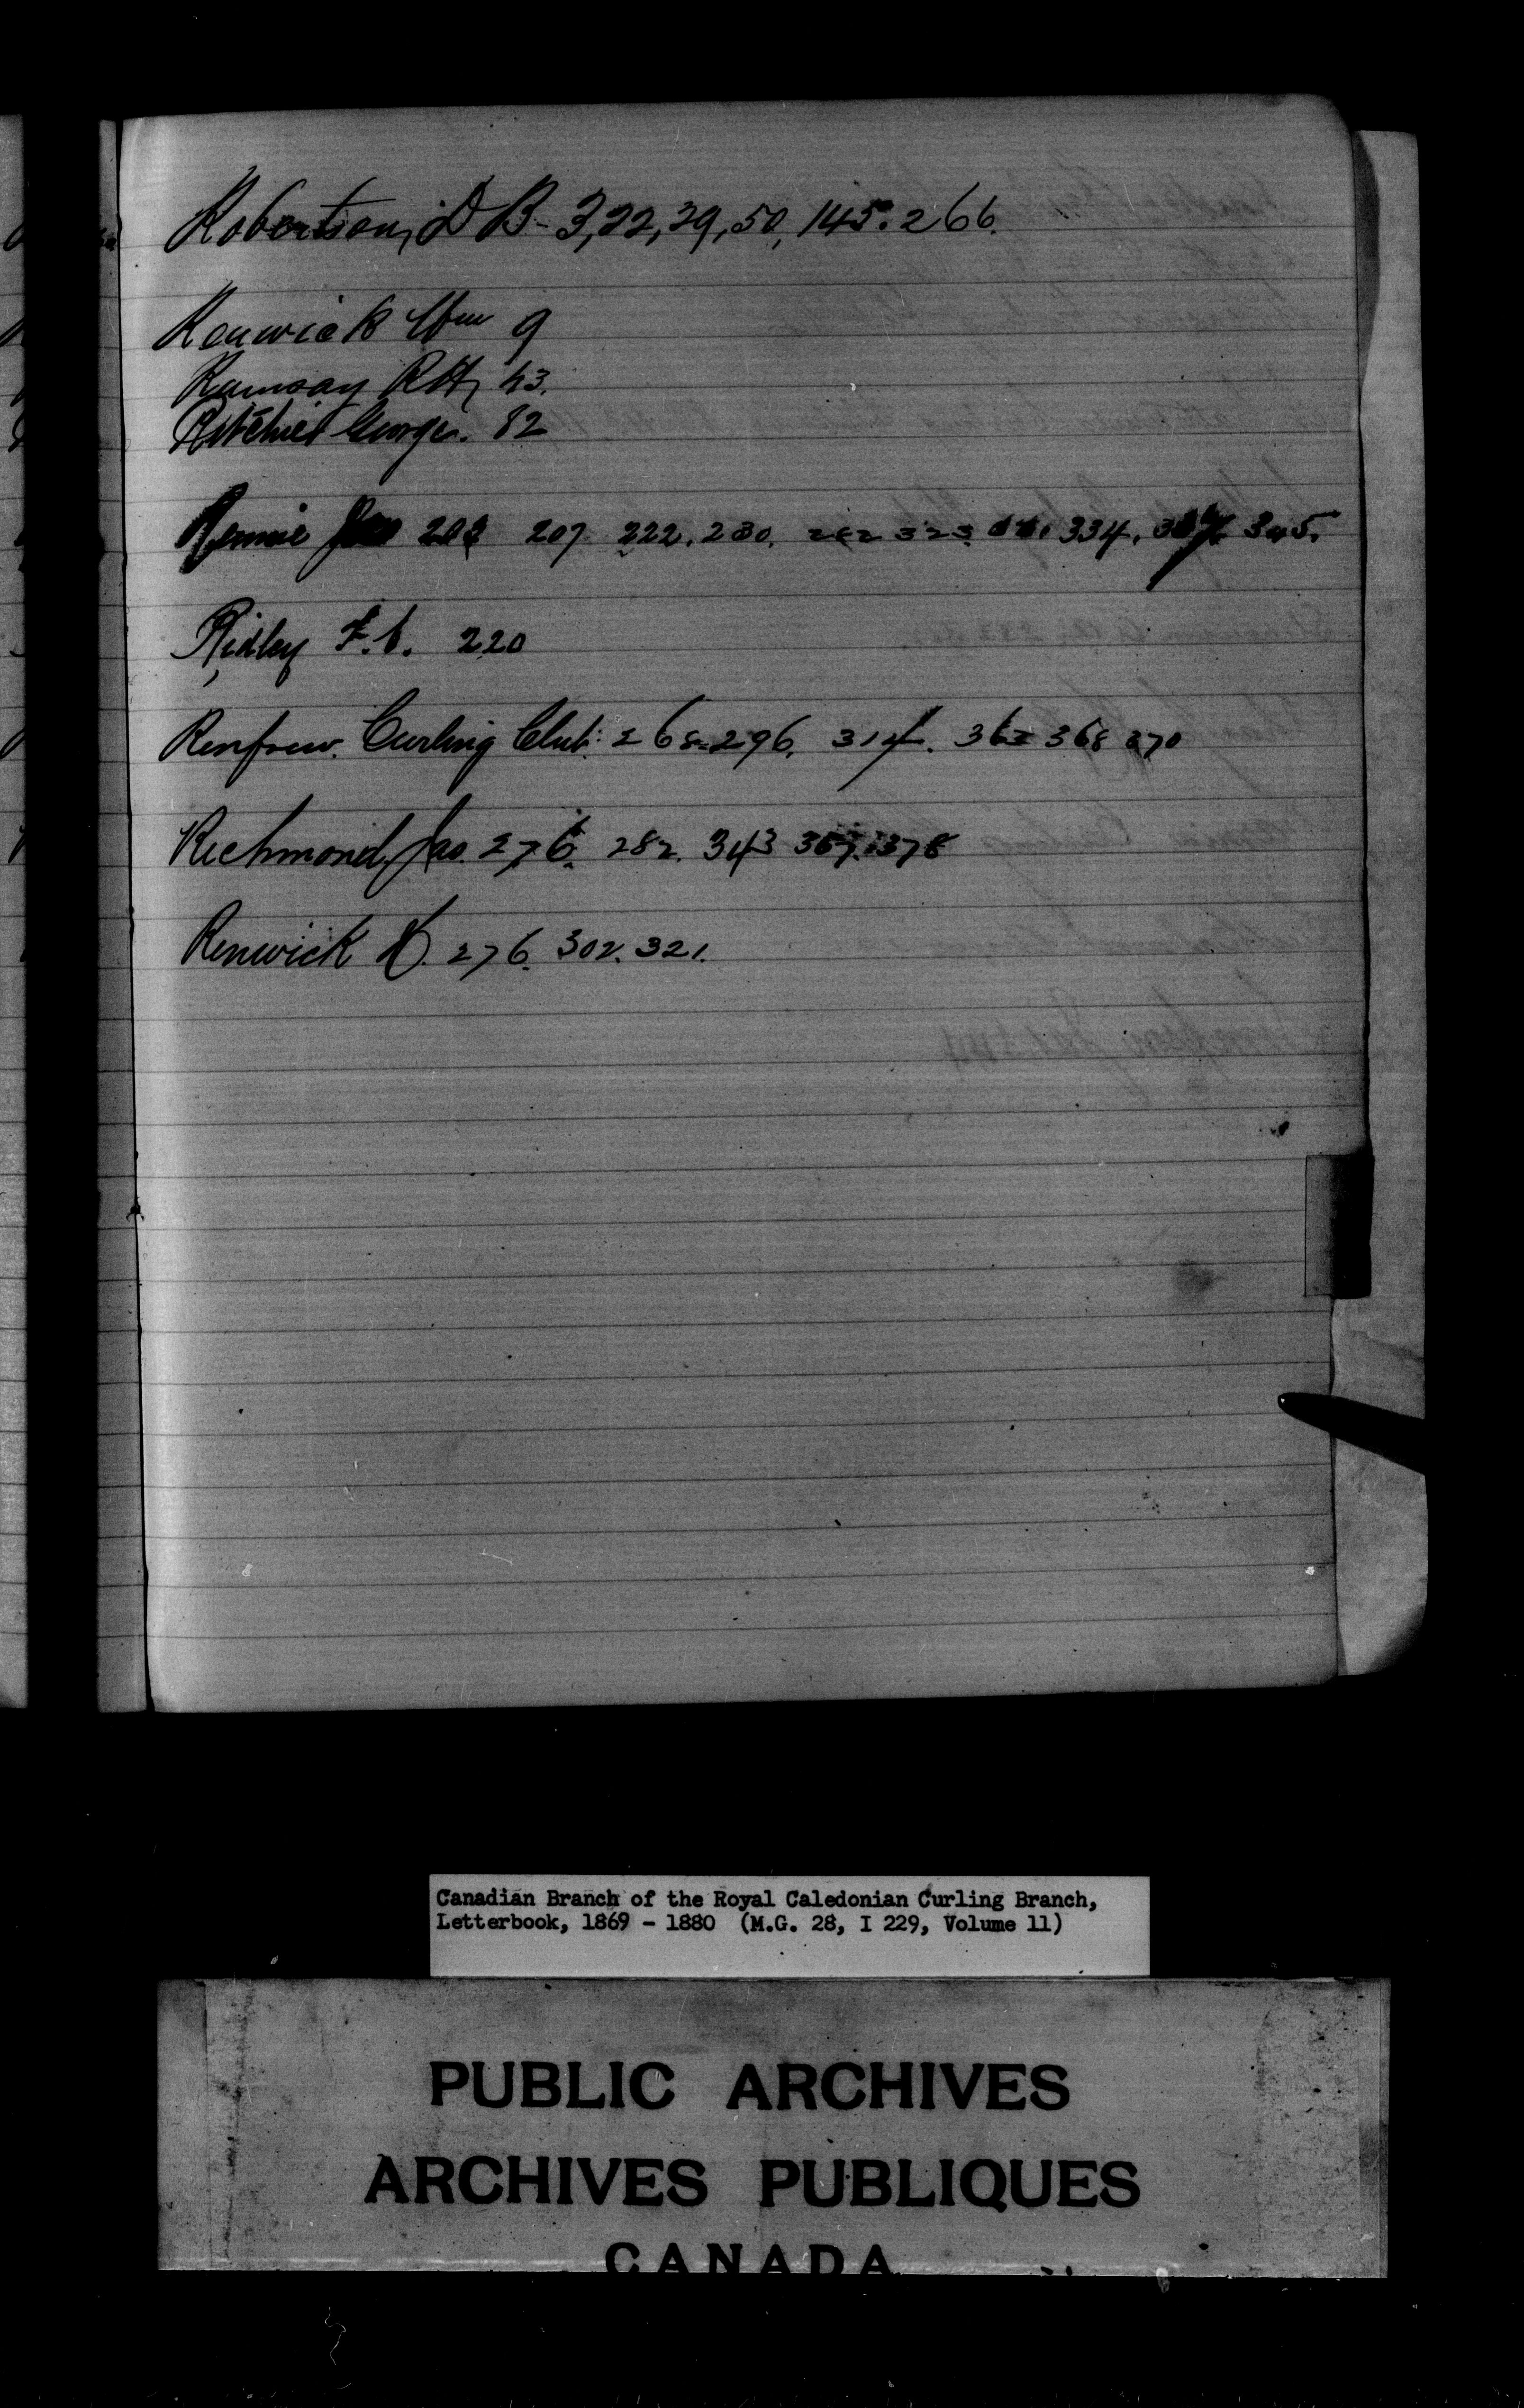 Robertson, D B - 3, 22, 39, 50, 145. 266.
Renwick Wm 9
Ramsay R H, 43.
Ritchie George. 82
Rennie 203 207 222. 230. 282 323 334. 345.
Ridley F. C. 220
Renfrew. Curling Club. 268. 296. 314. 362 368 370
Richmond Jas. 276. 282. 343 357. 378
Renwick D. 276. 302. 321.
Canadian Branch of the Royal Caledonian Curling Branch,
Letterbook, 1869 - 1880 (M.G. 28, I 229, Volume 11)
PUBLIC ARCHIVES
ARCHIVES PUBLIQUES
CANADA